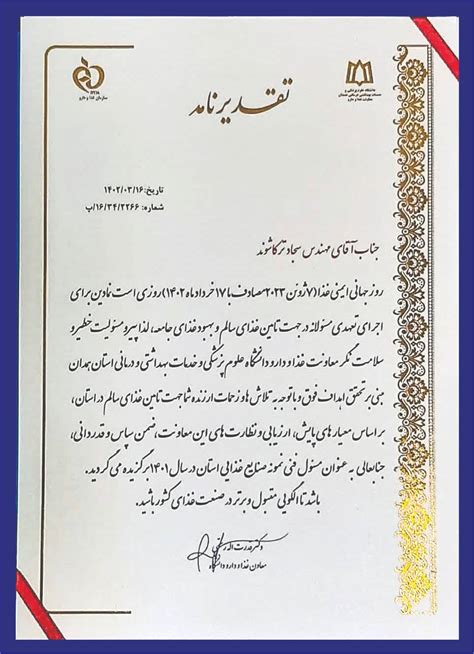 تقدیرنامه
سازمان غذا و دارو
دانشگاه علوم پزشکی و
خدمات بهداشتی درمانی همدان
معاونت غذا و دارو
تاریخ: ۱۴۰۲/۰۳/۱۶
شماره: ۱۶/۳۴/۲۲۶۶/پ
جناب آقای مهندس سجاد ترکاشوند
روز جهانی ایمنی غذا (۷ ژوئن ۲۰۲۳ مصادف با ۱۷ خرداد ماه ۱۴۰۲) روزی است نمادین برای
اجرای تعهدی مسئولانه در جهت تامین غذای سالم و بهبود غذای جامعه، لذا پیرو مسئولیت خطیر و
سلامت نگر معاونت غذا و دارو دانشگاه علوم پزشکی و خدمات بهداشتی و درمانی استان همدان
مبنی بر تحقق اهداف فوق و با توجه به تلاش ها و زحمات ارزنده شما جهت تامین غذای سالم در استان،
بر اساس معیار های پایش، ارزیابی و نظارت های این معاونت، ضمن سپاس و قدردانی،
جنابعالی به عنوان مسئول فنی نمونه صنایع غذایی استان در سال ۱۴۰۱ برگزیده می گردید.
باشد تا الگویی مقبول و برتر در صنعت غذای کشور باشید.
دکتر قدرت اله
معاون غذا و دارو دانشگاه